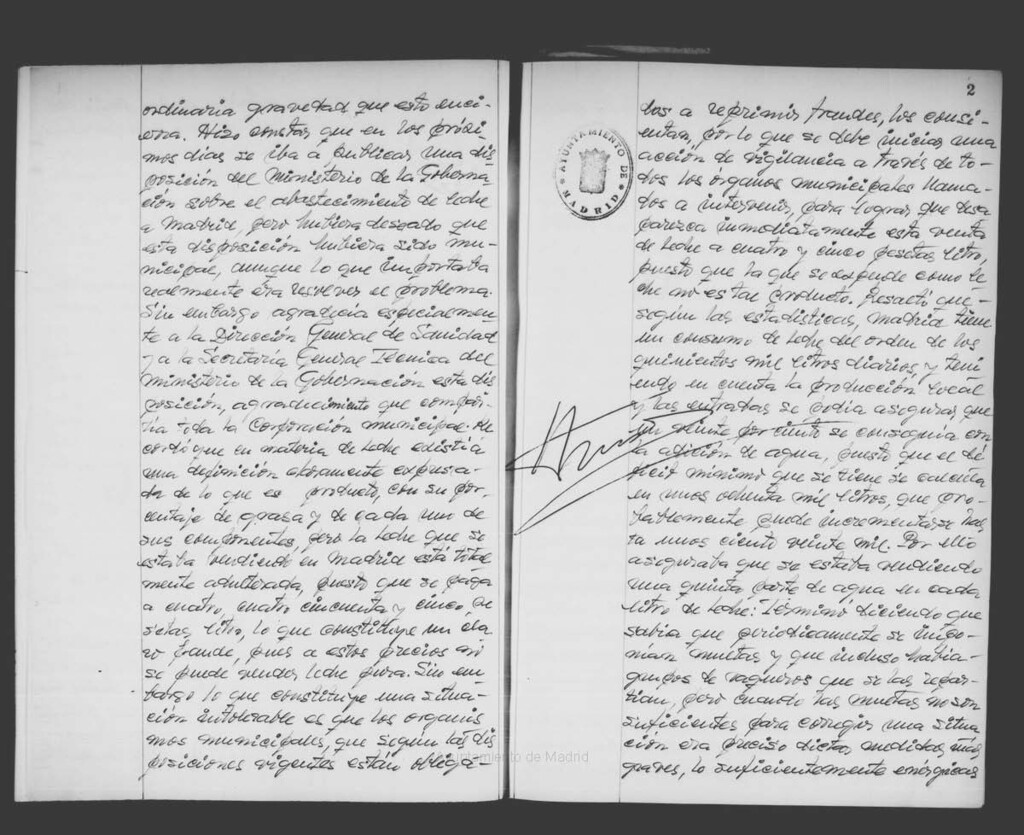 ordinaria gravedad que esto enci-
erra. Hizo constar, que en los próxi-
mos días se iba a publicar una dis-
posición del Ministerio de la Goberna-
ción sobre el abastecimiento de leche
a Madrid, pero hubiera deseado que
esta disposición hubiera sido mu-
nicipal, aunque lo que importaba
realmente era resolver el problema.
Sin embargo agradecía especialmen-
te a la Dirección General de Sanidad
y a la Secretaría General Técnica del
Ministerio de la Gobernación esta dis
posición, agradecimiento que compar-
tía toda la Corporación municipal. Re
cordó que en materia de leche existía
una definición claramente expresa-
da de lo que es producto, con su por-
centaje de grasa y de cada uno de
sus componentes, pero la leche que se
estaba vendiendo en Madrid está total
mente adulterada, puesto que se paga
a cuatro, cuatro cincuenta y cinco pe
setas litro, lo que constituye un cla
ro fraude, pues a estos precios no
se puede vender leche pura. Sin em
bargo lo que constituye una situa-
ción intolerable es que los organis
mos municipales, que según las dis
posiciones vigentes están obliga-
Ayuntamiento de Madrid
2
AYUNTAMIENTO DE MADRID
dos a reprimir fraudes, los consi-
entan, por lo que se debe iniciar una
acción de vigilancia a través de to-
dos los órganos municipales llama-
dos a intervenir, para lograr que desa
parezca inmediatamente esta venta
de leche a cuatro y cinco pesetas litro,
puesto que la que se expende como le
che no es tal producto. Resaltó que-
según las estadísticas, Madrid tiene
un consumo de leche del orden de los
quinientos mil litros diarios, y teni
endo en cuenta la producción local
y las entradas se podía asegurar que
un veinte por ciento se conseguía con
la adición de agua, puesto que el dé
ficit mínimo que se tiene se calcula
en unos ochenta mil litros, que pro-
bablemente puede incrementarse has
ta unos ciento veinte mil. Por ello
aseguraba que se estaba vendiendo
una quinta parte de agua en cada
litro de leche. Terminó diciendo que
sabía que periódicamente se impo-
nían multas y que incluso había
grupos de vaqueros que se las repar-
tían, pero cuando las multas no son
suficientes para corregir una situa
ción era preciso dictar medidas más
graves, lo suficientemente enérgicas